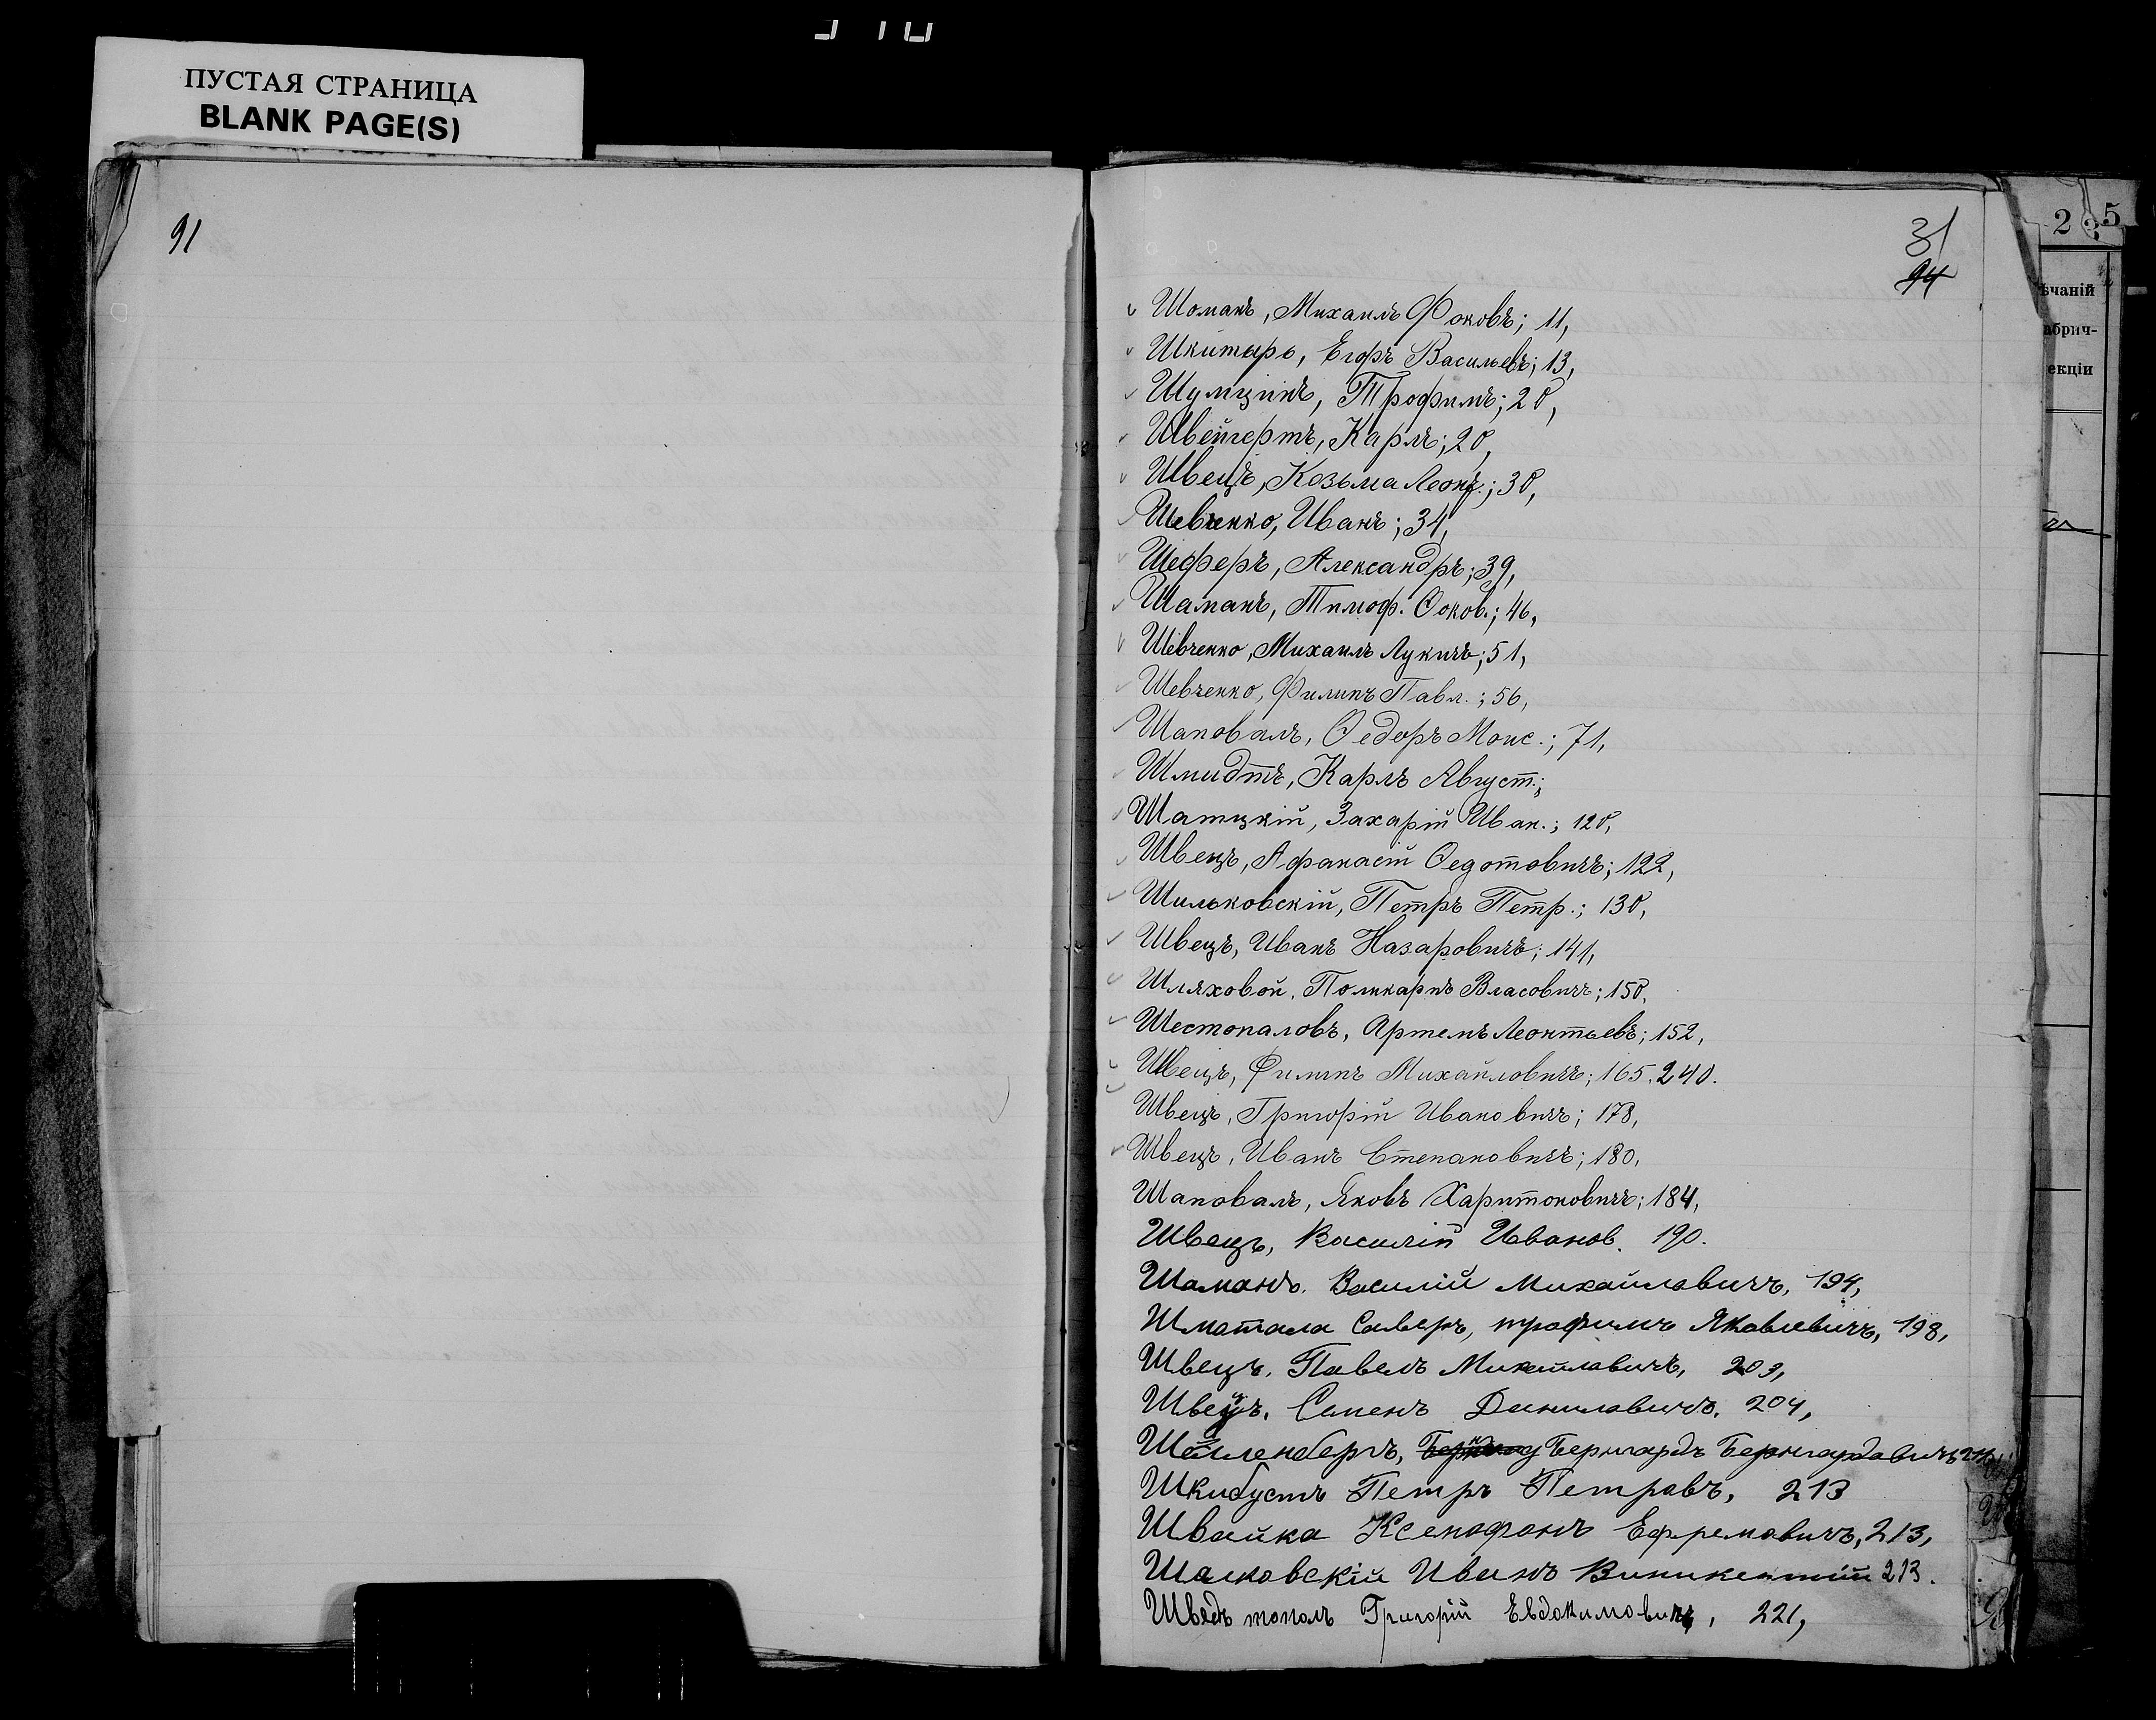 ПУСТАЯ СТРАНИЦА
BLANK PAGE(S)
91
31
94
2 3 5
ѣчаній
абрич-
екціи
Шоманъ, Михаилъ Фоковъ; 11,
Шкитарь, Егоръ Васильевъ; 13,
Шумцинъ, Трофимъ; 20,
Швейгертъ, Карлъ; 20,
Швецъ, Козьма Леонт.; 30,
Шевченко, Иванъ; 34,
Шеферъ, Александръ; 39,
Шаманъ, Тимоф. Ѳоков.; 46,
Шевченко, Михаилъ Лукичъ; 51,
Шевченко, Филипъ Павл.; 56,
Шаповалъ, Ѳедоръ Моис.; 71,
Шмидтъ, Карлъ Август.;
Шатцкій, Захарій Иван.; 120,
Швецъ, Афанасій Ѳедотовичъ; 122,
Шильковскій, Петръ Петр.; 130,
Швецъ, Иванъ Назаровичъ; 141,
Шляховой, Поликарпъ Власовичъ; 150,
Шестопаловъ, Артемъ Леонтьевъ; 152,
Швецъ, Филипъ Михайловичъ; 165. 240.
Швецъ, Григорій Ивановичъ; 178,
Швецъ, Иванъ Степановичъ; 180,
Шаповалъ, Яковъ Харитоновичъ; 184,
Швецъ, Василій Иванов. 190.
Шаманъ. Василій Михайлавичъ, 194,
Шматала Саверъ, трофимъ Яковлевичъ, 198,
Швецъ. Павелъ Михайлавичъ, 203,
Швецъ. Семенъ Данилавичъ. 204,
Шеленбергъ, Бернгардъ Бернгардавичъ 211
Шкибустъ Петръ Петравъ, 213
Швайка Ксенофонъ Ефремавичъ, 213,
Шалковскій Иванъ Виникентій 213.
Шведъ тополъ Григорій Евдокимовичъ, 221,